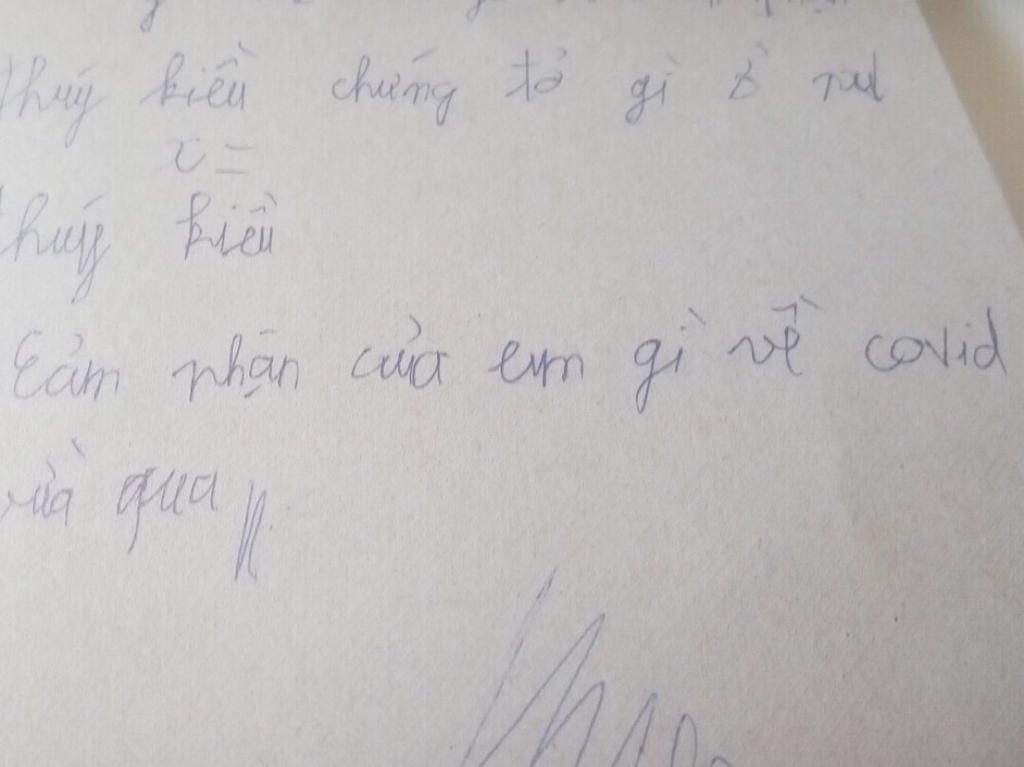 thúy kiều chứng tỏ gì ở
r =
thúy kiều
Cảm nhận của em gì về covid
qua